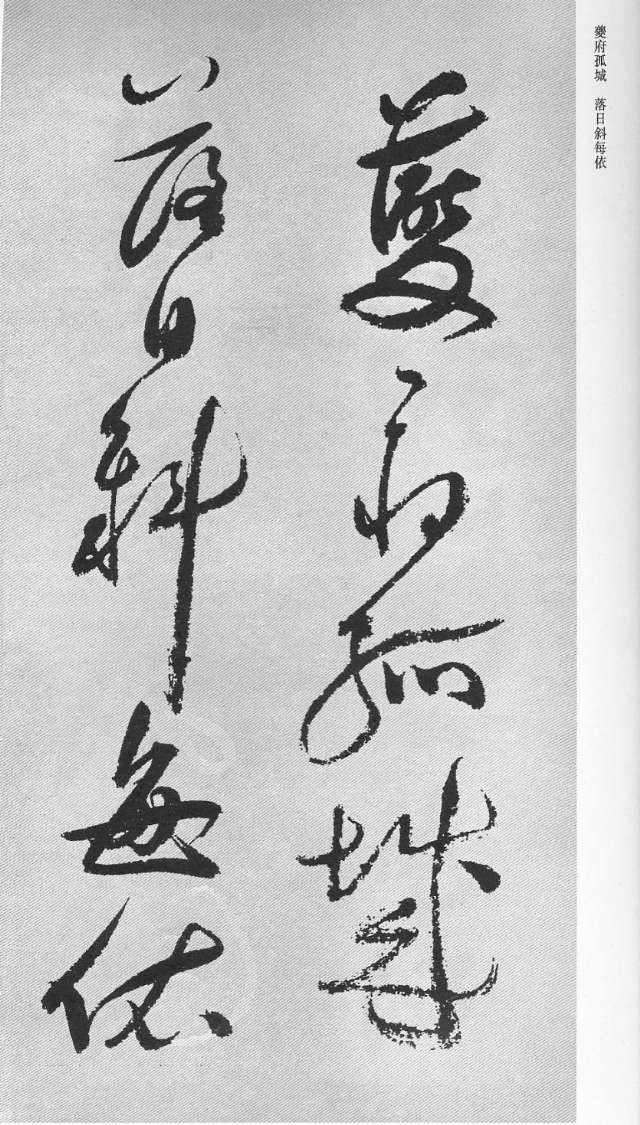 夔府孤城 落日斜每依
夔府孤城
落日斜每依